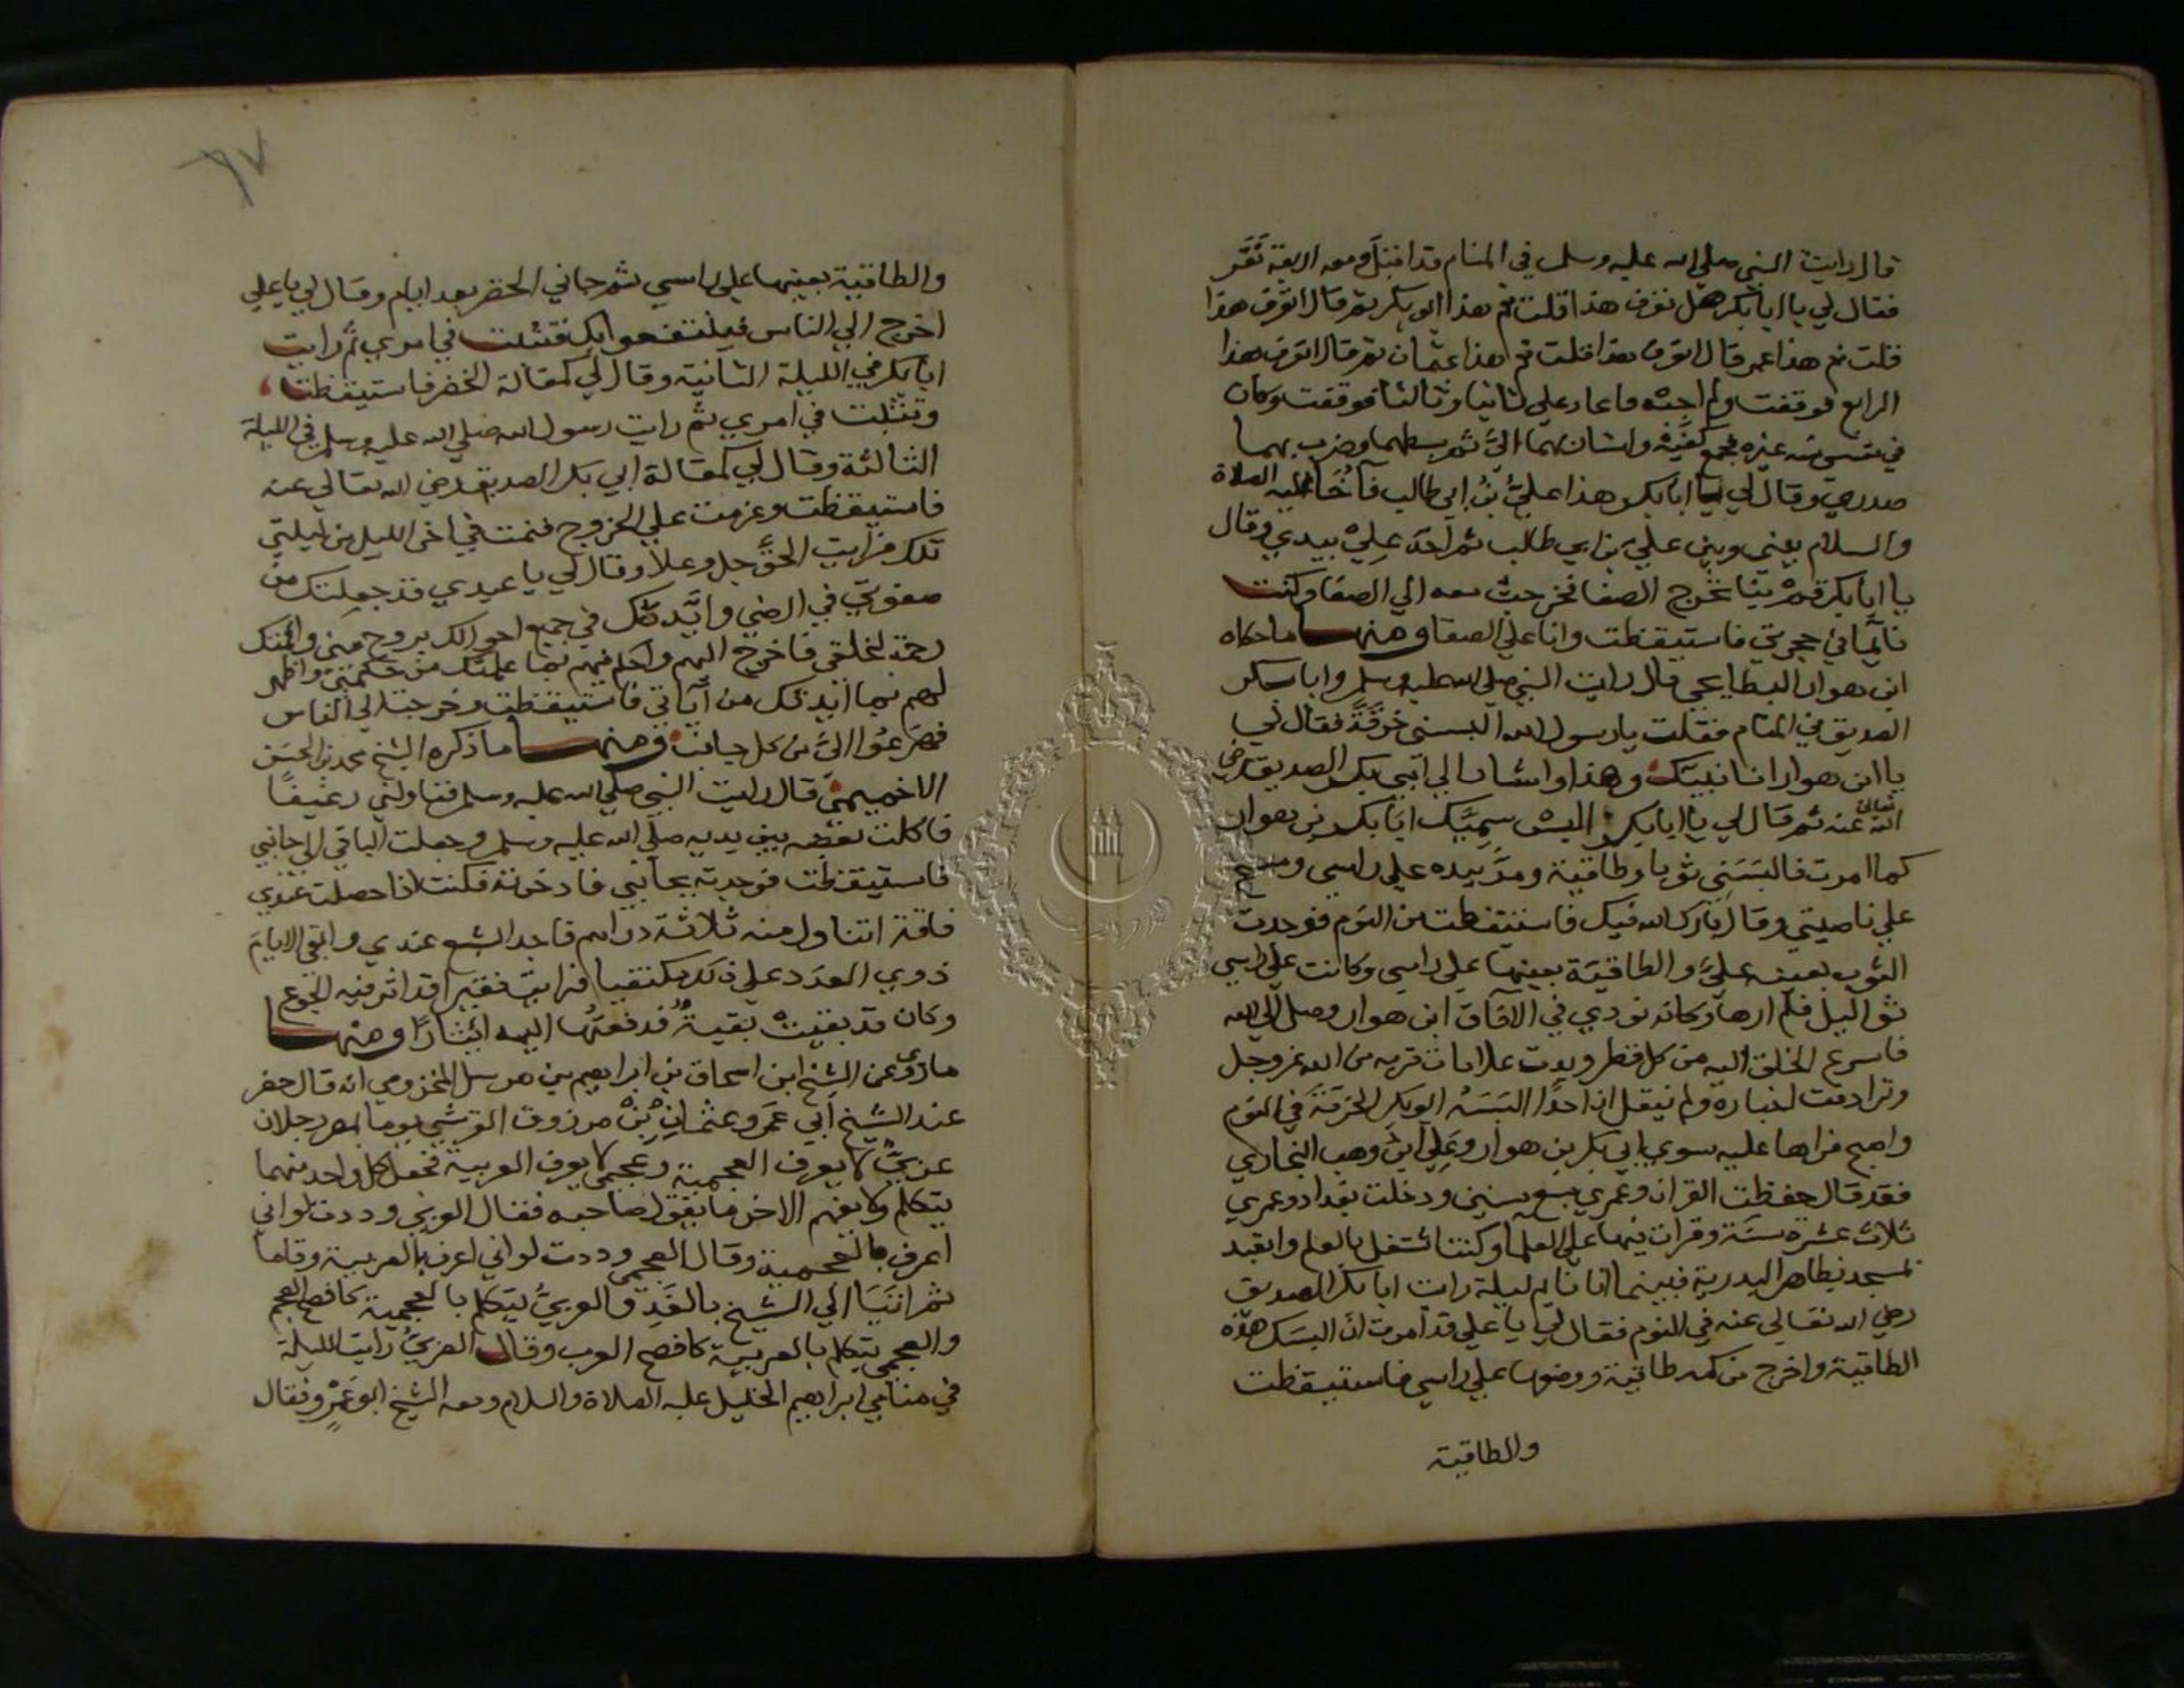 قال رايت النبي صلي الله عليه وسلم في المنام قد اقبل ومعه اربعة نفر
فقال لي يا ابا بكر هل تعرف هذا قلت نعم هذا ابو بكر ثم قال اتعرف هذا
قلت نعم هذا عمر قال اتعرف هذا قلت نعم هذا عثمان ثم قال اتعرف هذا
الرابع فوقفت ولم اجبه فاعاد علي ثانيا وثالثا فوقفت وكان
في نفسي منه غيره فجمع كفيه واشار بهما الي ثم بسطهما وضرب بهما
صدري وقال لي يا ابا بكر هذا علي بن ابي طالب فآخا عليه الصلاة
والسلام بيني وبين علي بن ابي طالب ثم اخذ علي بيدي وقال
يا ابا بكر قم بنا نخرج الصفا فخرجت معه الي الصفا وكنت
نايما في حجرتي فاستيقظت وانا علي الصفا ومنها ما حكاه
ابن هوار البطايحي قال رايت النبي صلي الله عليه وسلم وابا بكر
الصديق في المنام فقلت يا رسول الله البسني خرقة فقال لي
يا ابن هوار انا نبيك وهذا واشار الي ابي بكر الصديق رضي
الله تعالي عنه ثم قال لي يا ابا بكر البس سميك ابا بكر بن هوار
كما امرت فالبسني ثوبا وطاقية ومر بيده علي راسي ومسح
علي ناصيتي وقال بارك الله فيك فاستيقظت من النوم فوجدت
الثوب بعينه علي والطاقية بعينها علي راسي وكانت علي راسي
ثواليل فلم ارها وكانه نودي في الآفاق ابن هوار وصل الي الله
فاسرع الخلق اليه من كل قطر وبدت علامات قربه من الله عز وجل
وترادفت اخباره ولم ينقل ان احدا البسه ابو بكر الخرقة في النوم
واصبح فراها عليه سوي ابي بكر بن هوار وعلي ابن وهب
فقد قال حفظت القران وعمري سبع سنين ودخلت بغداد وعمري
ثلاث عشرة سنة وقرات فيها علي العلما وكنت اشتغل بالعلم واتعبد
بمسجد بظاهر البدرية فبينما انا نايم ليلة رايت ابا بكر الصديق
رضي الله تعالي عنه في النوم فقال لي يا علي قد امرت ان البسك هذه
الطاقية واخرج من كمه طاقية ووضعها علي راسي فاستيقظت
والطاقية
٦٧
والطاقية بعينها علي راسي ثم جاني الخضر بعد ايام وقال لي يا علي
اخرج الي الناس فينتفعوا بك فتثبت في امري ثم رايت
ابا بكر في الليلة الثانية وقال لي كمقالة الخضر فاستيقظت
وتثبت في امري ثم رايت رسول الله صلي الله عليه وسلم في الليلة
الثالثة وقال لي كمقالة ابي بكر الصديق رضي الله تعالي عنه
فاستيقظت وعزمت علي الخروج فنمت في اخر الليل من ليلتي
تلك فرايت الحق جل وعلا وقال لي يا عبدي قد جعلتك من
صفوتي في ارضي وايدتك في جميع احوالك بروح مني واقمتك
رحمة لخلقي فاخرج اليهم واحكم فيهم بما علمتك من حكمتي واظهر
لهم بما ايدتك من آياتي فاستيقظت وخرجت الي الناس
فهرعوا الي من كل جانب ومنها ما ذكره الشيخ محمد بن الحسن
الاخميمي قال رايت النبي صلي الله عليه وسلم فناولني رغيفا
فاكلت بعضه بين يديه صلي الله عليه وسلم وجعلت الباقي الي جانبي
فاستيقظت فوجدته بجانبي فادخرته فكنت اذا حصلت عندي
فاقة اتناول منه ثلاثة دراهم فاجد الشبع عندي وابقي الايام
ذوي العدد علي ذلك مكتفيا فرايت فقيرا قد اثر فيه الجوع
وكان قد بقيت بقية فدفعتها اليه ايثارا ومنها
ما روي عن الشيخ ابن اسحاق بن ابراهيم بن مرسل المخزومي انه قال حضر
عند الشيخ ابي عمرو عثمان بن مرزوق القرشي يوما بمصر رجلان
عربي لا يعرف العجمية وعجمي لا يعرف العربية فجعل كل واحد منهما
يتكلم ولا يفهم الاخر ما يقول صاحبه فقال العربي وددت لو اني
اعرف بالعجمية وقال العجمي وددت لو اني اعرف بالعربية وقاما
ثم اتيا الي الشيخ بالغد والعربي يتكلم بالعجمية كافصح العجم
والعجمي يتكلم بالعربية كافصح العرب وقال العربي رايت الليلة
في منامي ابراهيم الخليل عليه الصلاة والسلام ومعه الشيخ ابو عمرو فقال